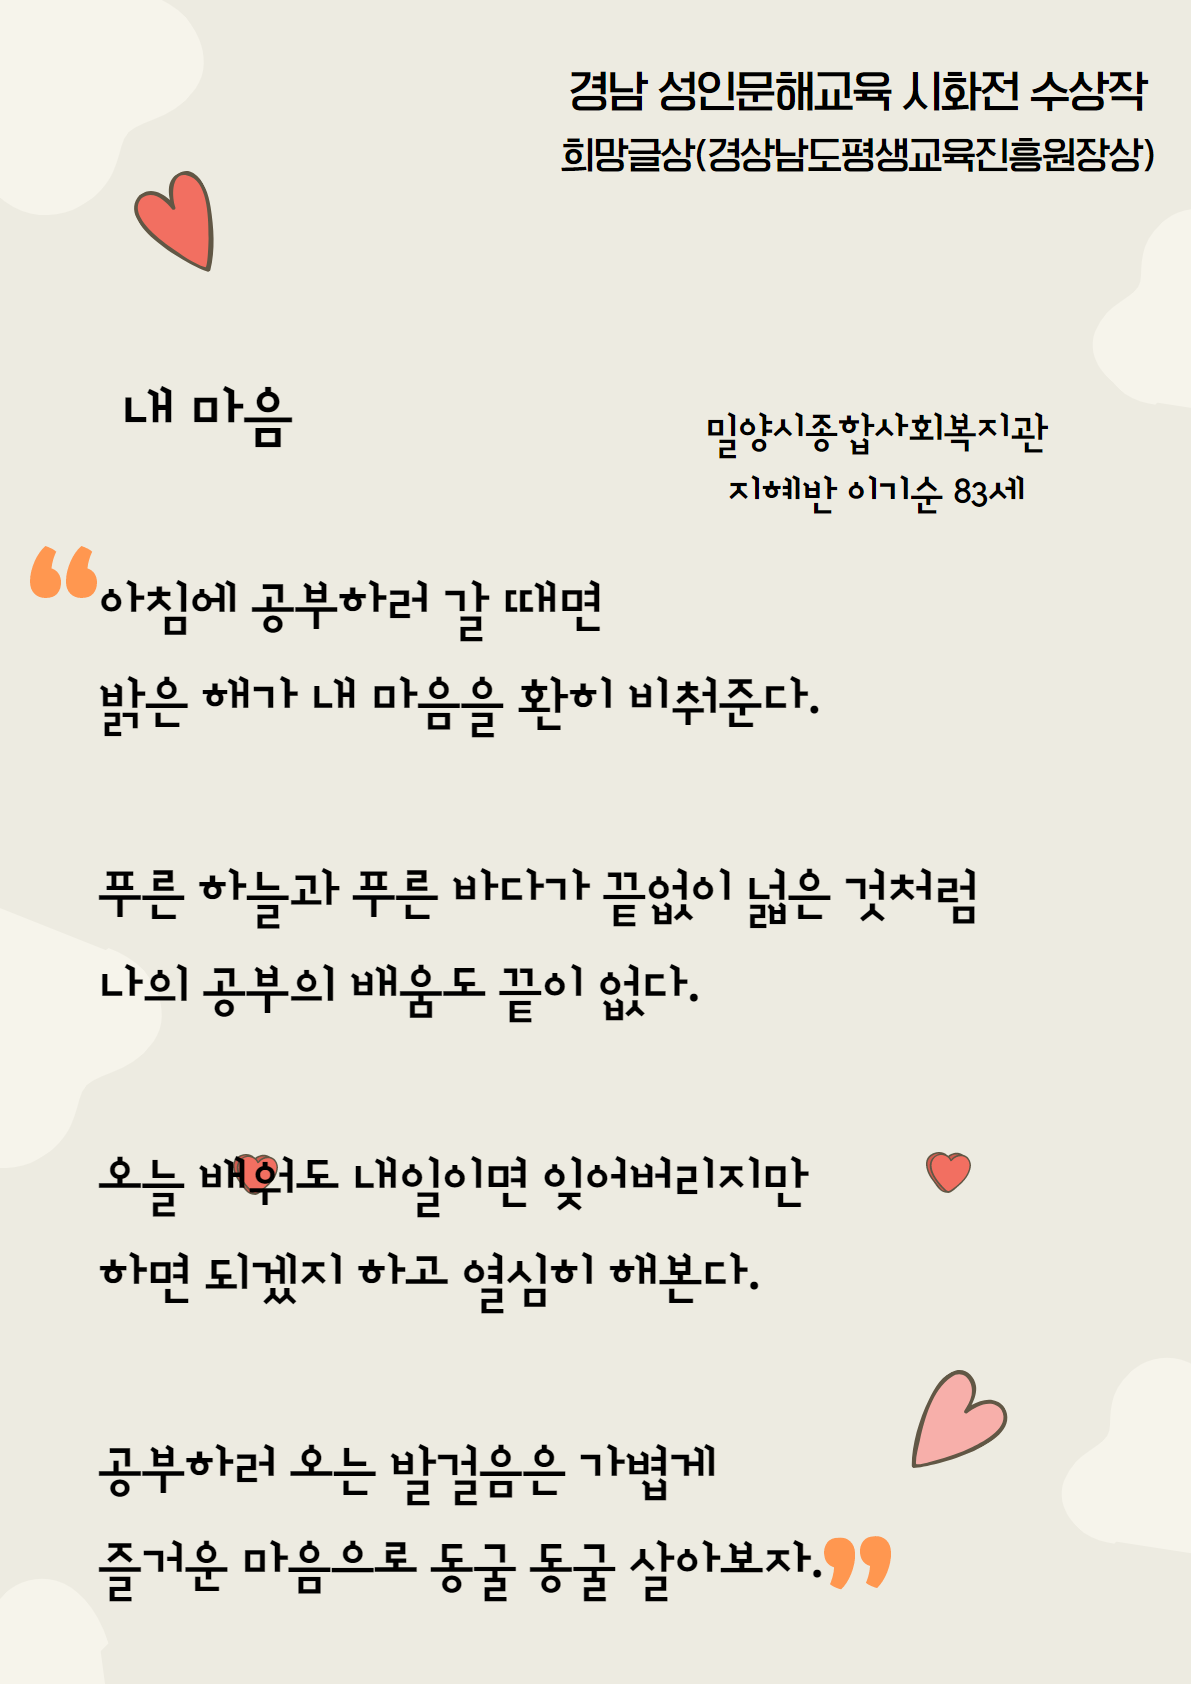 경남 성인문해교육 시화전 수상작
희망글상(경상남도평생교육진흥원장상)
내 마음
밀양시종합사회복지관
지혜반 이기순 83세
“아침에 공부하러 갈 때면
밝은 해가 내 마음을 환히 비춰준다.
푸른 하늘과 푸른 바다가 끝없이 넓은 것처럼
나의 공부의 배움도 끝이 없다.
오늘 배워도 내일이면 잊어버리지만
하면 되겠지 하고 열심히 해본다.
공부하러 오는 발걸음은 가볍게
즐거운 마음으로 동굴 동굴 살아보자.”